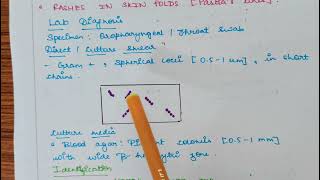 RASHES IN SKIN FOLDS [Pastia's lines].
Lab Diagnosis
Specimen: Oropharyngeal / Throat swab
Direct / Culture smear"
- Gram +, spherical cocci [0.5-1 um], in short
chains.
Culture media
• Blood agar: colonies [0.5-1 mm]
with wide β zone.
Identification